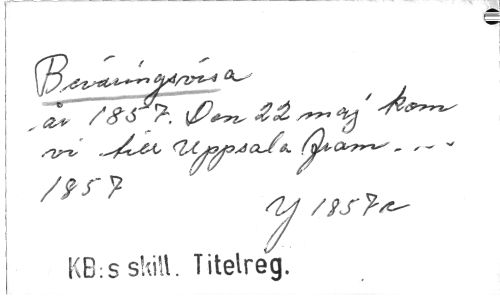 Beväringsvisa
år 1857. Den 22 maj kom
vi till Uppsala fram. ...
1857
Y 1857r
KB:s skill. Titelreg.